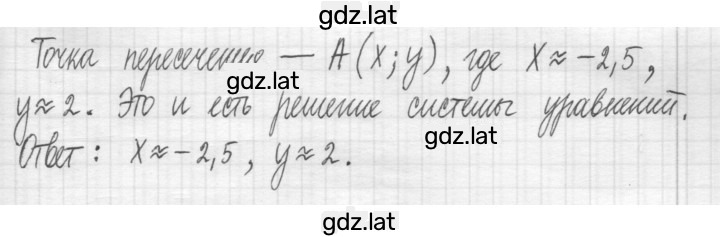 gdz.lat
Точка пересечению — A(x; y), где x ≈ -2,5,
gdz.lat
y ≈ 2. Это и есть решение системы уравнений.
gdz.lat
Ответ: x ≈ -2,5, y ≈ 2.
gdz.lat